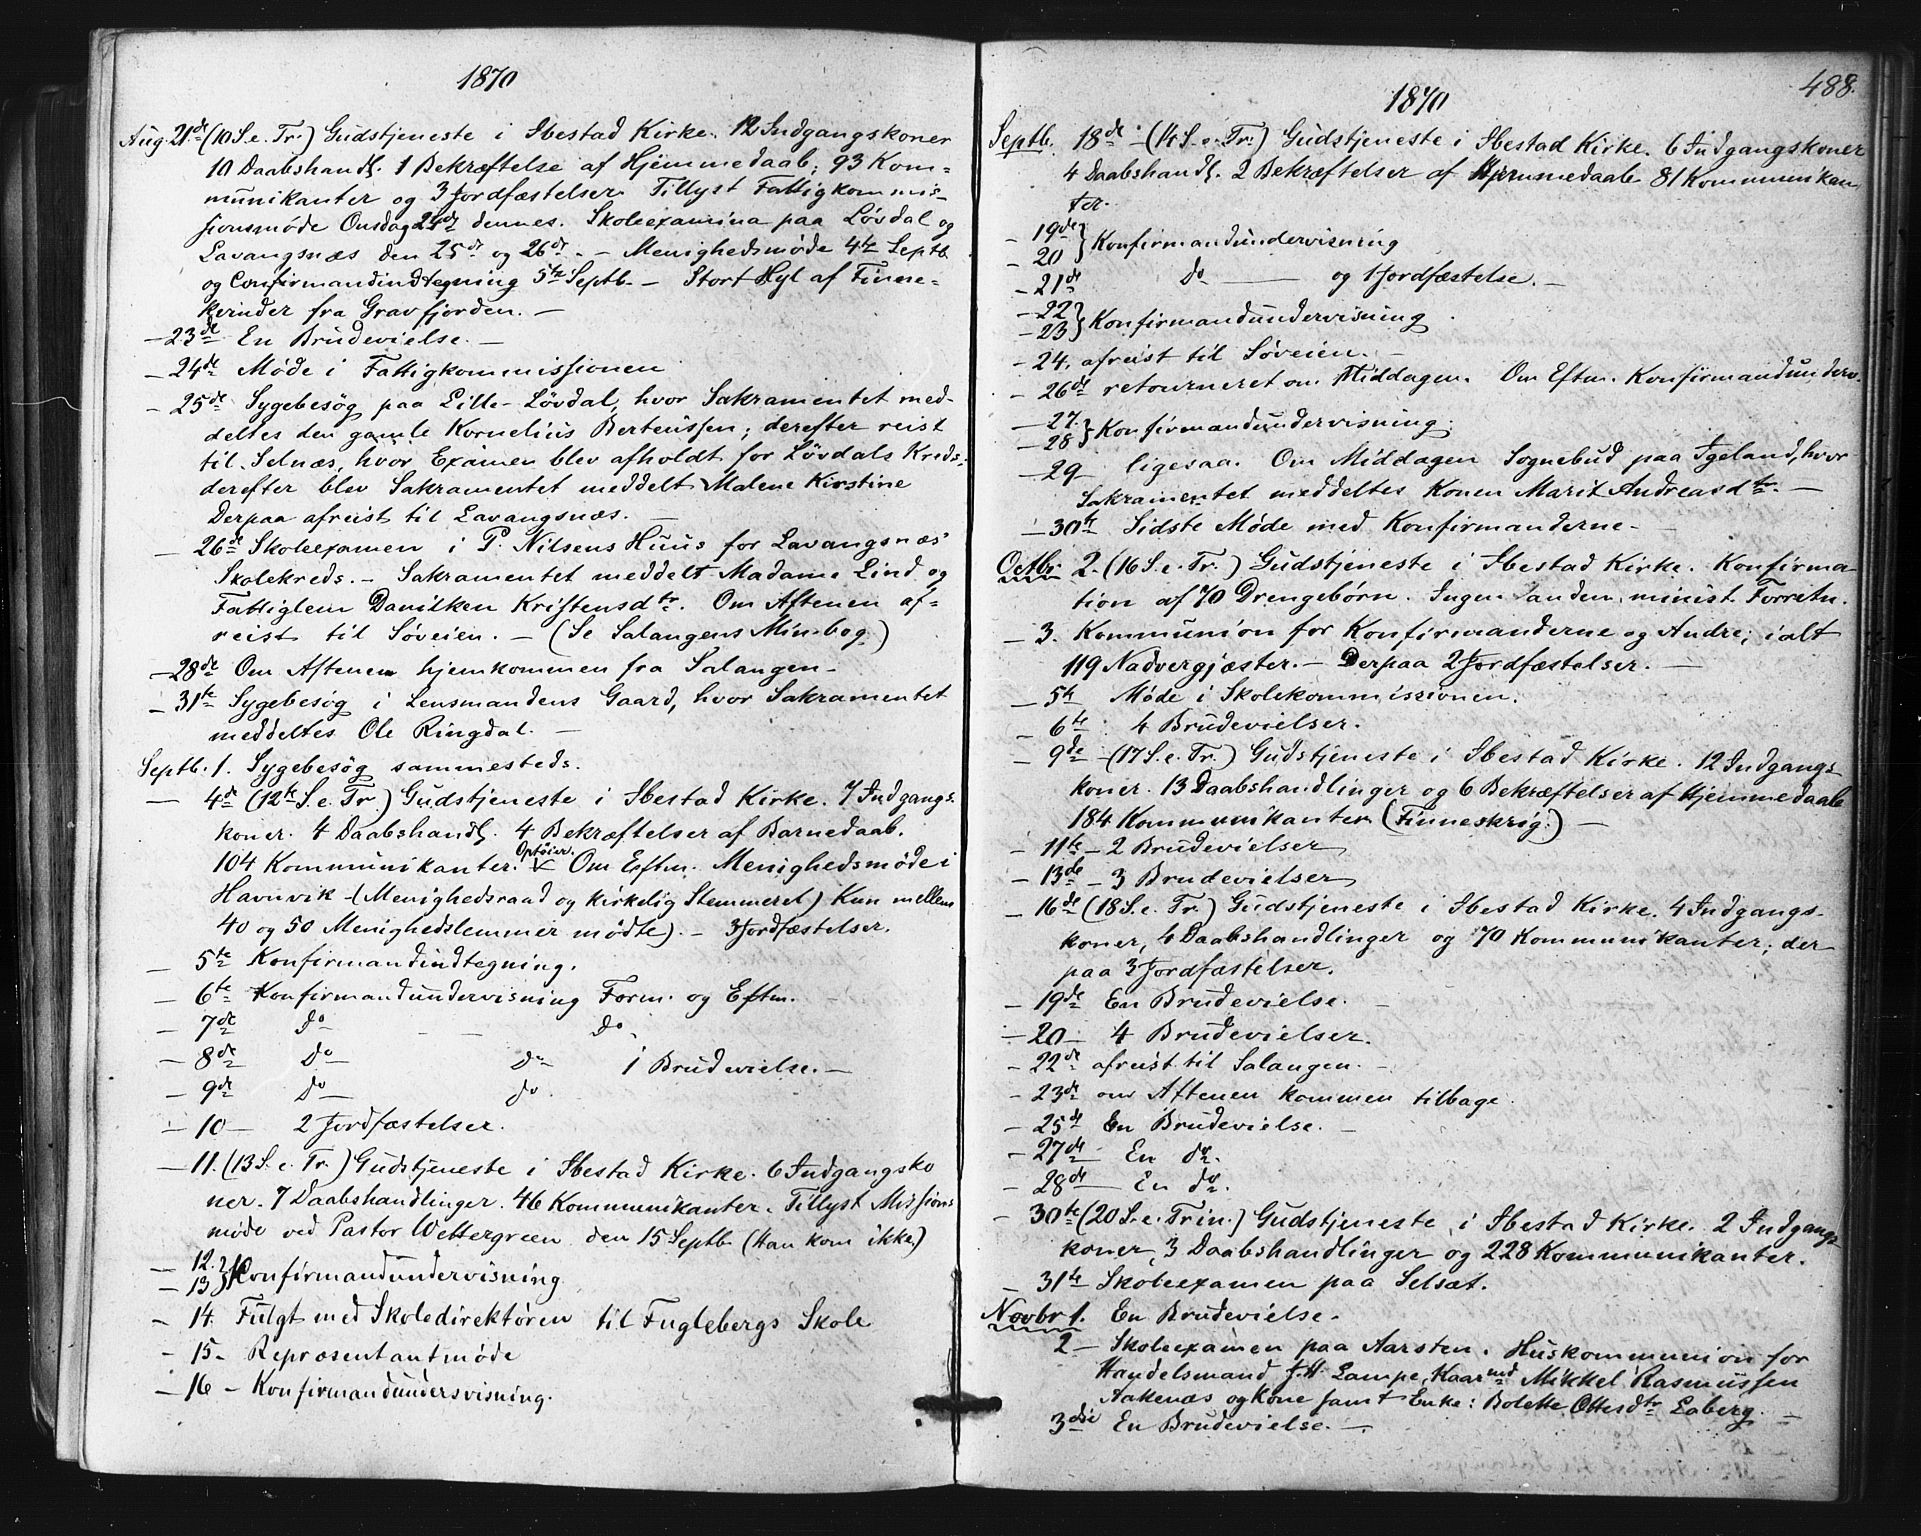 1870
Aug. 21de (10 S. e. Tr.) Gudstjeneste i Ibestad Kirke. 12 Indgangskoner
10 Daabshandl. 1 Bekræftelse af Hjemmedaab; 93 Kom=
munikanter og 3 Jordfæstelser. Tillyst Fattigkommis=
sionsmøde Onsdag 24de dennes. Skoleexamina paa Løvdal og
Lavangsnæs den 25de og 26de. – Menighedsmøde 4de Septb.
og Confirmandindtegning 5te Septb. – Stort Hyl af Finne=
kvinder fra Gravfjorden. –
– 23de En Brudevielse. –
– 24de Møde i Fattigkommissionen
– 25de Sygebesøg paa Lille-Løvdal, hvor Sakramentet med=
deltes den gamle Kornelius Berteussen; derefter reist
til Selnæs, hvor Examen blev afholdt for Løvdals Kreds;
derefter blev Sakramentet meddelt Malene Kirstine
Derpaa afreist til Lavangsnæs. –
– 26de Skoleexamen i P. Nilsens Huus for Lavangsnæs'
Skolekreds. – Sakramentet meddelt Madame Lind og
Fattiglem Danilken Kristensdtr. Om Aftenen af=
reist til Søveien. – (Se Salangens Min. bog.)
– 28de Om Aftenen hjemkommen fra Salangen –
– 31te Sygebesøg i Lensmandens Gaard, hvor Sakramentet
meddeltes Ole Ringdal. –
Septb. 1. Sygebesøg sammesteds.
– 4de (12te S. e. Tr.) Gudstjeneste i Ibestad Kirke. 7 Indgangs=
koner. 4 Daabshandl. 4 Bekræftelser af Barnedaab.
104 Kommunikanter. Optøier. Om Eftm. Menighedsmøde i
Havnvik – (Menighedsraad og kirkelig Stemmeret) Kun mellem
40 og 50 Menighedslemmer mødte). – 3 Jordfæstelser.
– 5te Konfirmandindtegning.
– 6te Konfirmandundervisning Form. og Eftm.
– 7de do – – do
– 8de do – do 1 Brudevielse. –
– 9de do – do.
– 10 – 2 Jordfæstelser.
– 11. (13 S. e. Tr.) Gudstjeneste i Ibestad Kirke. 6 Indgangsko
ner. 7 Daabshandlinger. 46 Kommunikanter. Tillyst Missions
møde ved Pastor Wettergreen den 15 Septb. (Han kom ikke)
– 12. }
– 13 } Konfirmandundervisning
– 14. Fulgt med Skoledirektøren til Fuglebergs Skole
– 15 – Repræsentantmøde
– 16 – Konfirmandundersvisning.
488.
1870
Septb. 18de – (14 S. e. Tr.) Gudstjeneste i Ibestad Kirke. 6 Indgangskoner
4 Daabshandl. 2 Bekræftelser af Hjemmedaab 81 Kommunikan
ter.
– 19de }
– 20 } Konfirmandundervisning
– 21de do – og 1 Jordfæstelse. –
– 22 }
– 23 } Konfirmandundervisning
– 24. afreist til Søveien. –
– 26de retourneret om Middagen. Om Eftm. Konfirmandunderv.
– 27. }
– 28 } Konfirmandundervisning.
– 29 – ligesaa. Om Middagen Sognebud paa Igeland, hvor
Sakramentet meddeltes Konen Marit Andreasdtr. –
– 30te Sidste Møde med Konfirmanderne –
Octbr. 2. (16 S. e. Tr.) Gudstjeneste i Ibestad Kirke. Konfirma=
tion af 70 Drengebørn. Ingen anden minist. Forretn.
– 3. Kommunion for Konfirmanderne og Andre; ialt
119 Nadvergjæster. – Derpaa 2 Jordfæstelser. –
– 5te Møde i Skolekommissionen.
– 6te 4 Brudevielser.
– 9de – (17 S. e. Tr.) Gudstjeneste i Ibestad Kirke. 12 Indgangs=
koner. 13 Daabshandlinger og 6 Bekræftelser af Hjemmedaab
184 Kommunikanter (Finneskrig.) –
– 11te – 2 Brudevielser
– 13de – 3 Brudevielser
– 16de (18 S. e. Tr.) Gudstjeneste i Ibestad Kirke. 4 Indgangs=
koner, 4 Daabshandlinger og 70 Kommunikanter; der=
paa 3 Jordfæstelser.
– 19de En Brudevielse. –
– 20 – 4 Brudevielser.
– 22de afreist til Salangen. –
– 23de om Aftenen kommen tilbage.
– 25de En Brudevielse. –
– 27de En do.
– 28de – En do.
– 30te (20 S. e. Trin.) Gudstjeneste i Ibestad Kirke. 2 Indgangs
koner, 3 Daabshandlinger og 228 Kommunikanter.
– 31te Skoleexamen paa Selsæt.
Novbr 1. En Brudevielse. –
2 – Skoleexamen paa Aarsten. Huskommunion for
Handelsmand J. H. Lampe, Kaarmd Mikkel Rasmussen
Aakenæs og Kone samt Enke: Bolette Ottesdtr Laberg. –
3die En Brudevielse. –